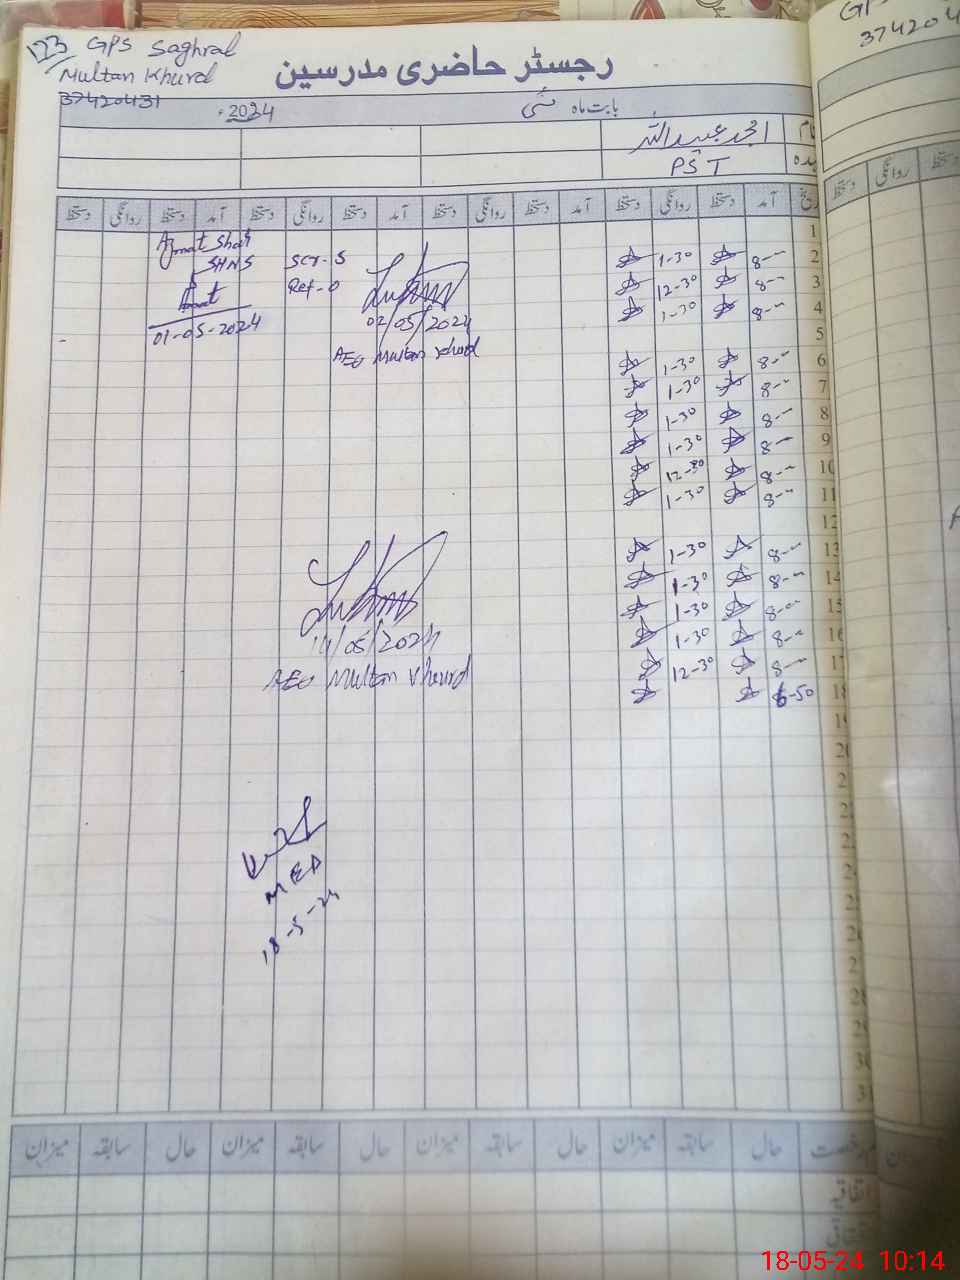 123 GPS Saghral
Multan Khurd
37420431
رجسٹر حاضری مدرسین
بابت ماہ مئی 2024ء
PST
آمد دستخط روانگی دستخط آمد دستخط روانگی دستخط آمد دستخط روانگی دستخط
1
2 8-- 1-30
3 8-- 12-30
4 8-- 1-30
5
6 8-- 1-30
7 8-- 1-30
8 8-- 1-30
9 8-- 1-30
10 8-- 12-30
11 8-- 1-30
12
13 8-- 1-30
14 8-- 1-30
15 8-- 1-30
16 8-- 1-30
17 8-- 12-30
18 6-50
Azmat Shah
SHNS
Scr-5
Ref-0
01-05-2024
02/05/2024
AEO Multan Khurd
AEO Multan Khurd
MEA
18-5-24
30
31
حال سابقہ میزان حال سابقہ میزان حال سابقہ میزان حال سابقہ میزان
اتفاقیہ
GPS
374204
دستخط روانگی دستخط
18-05-24 10:14